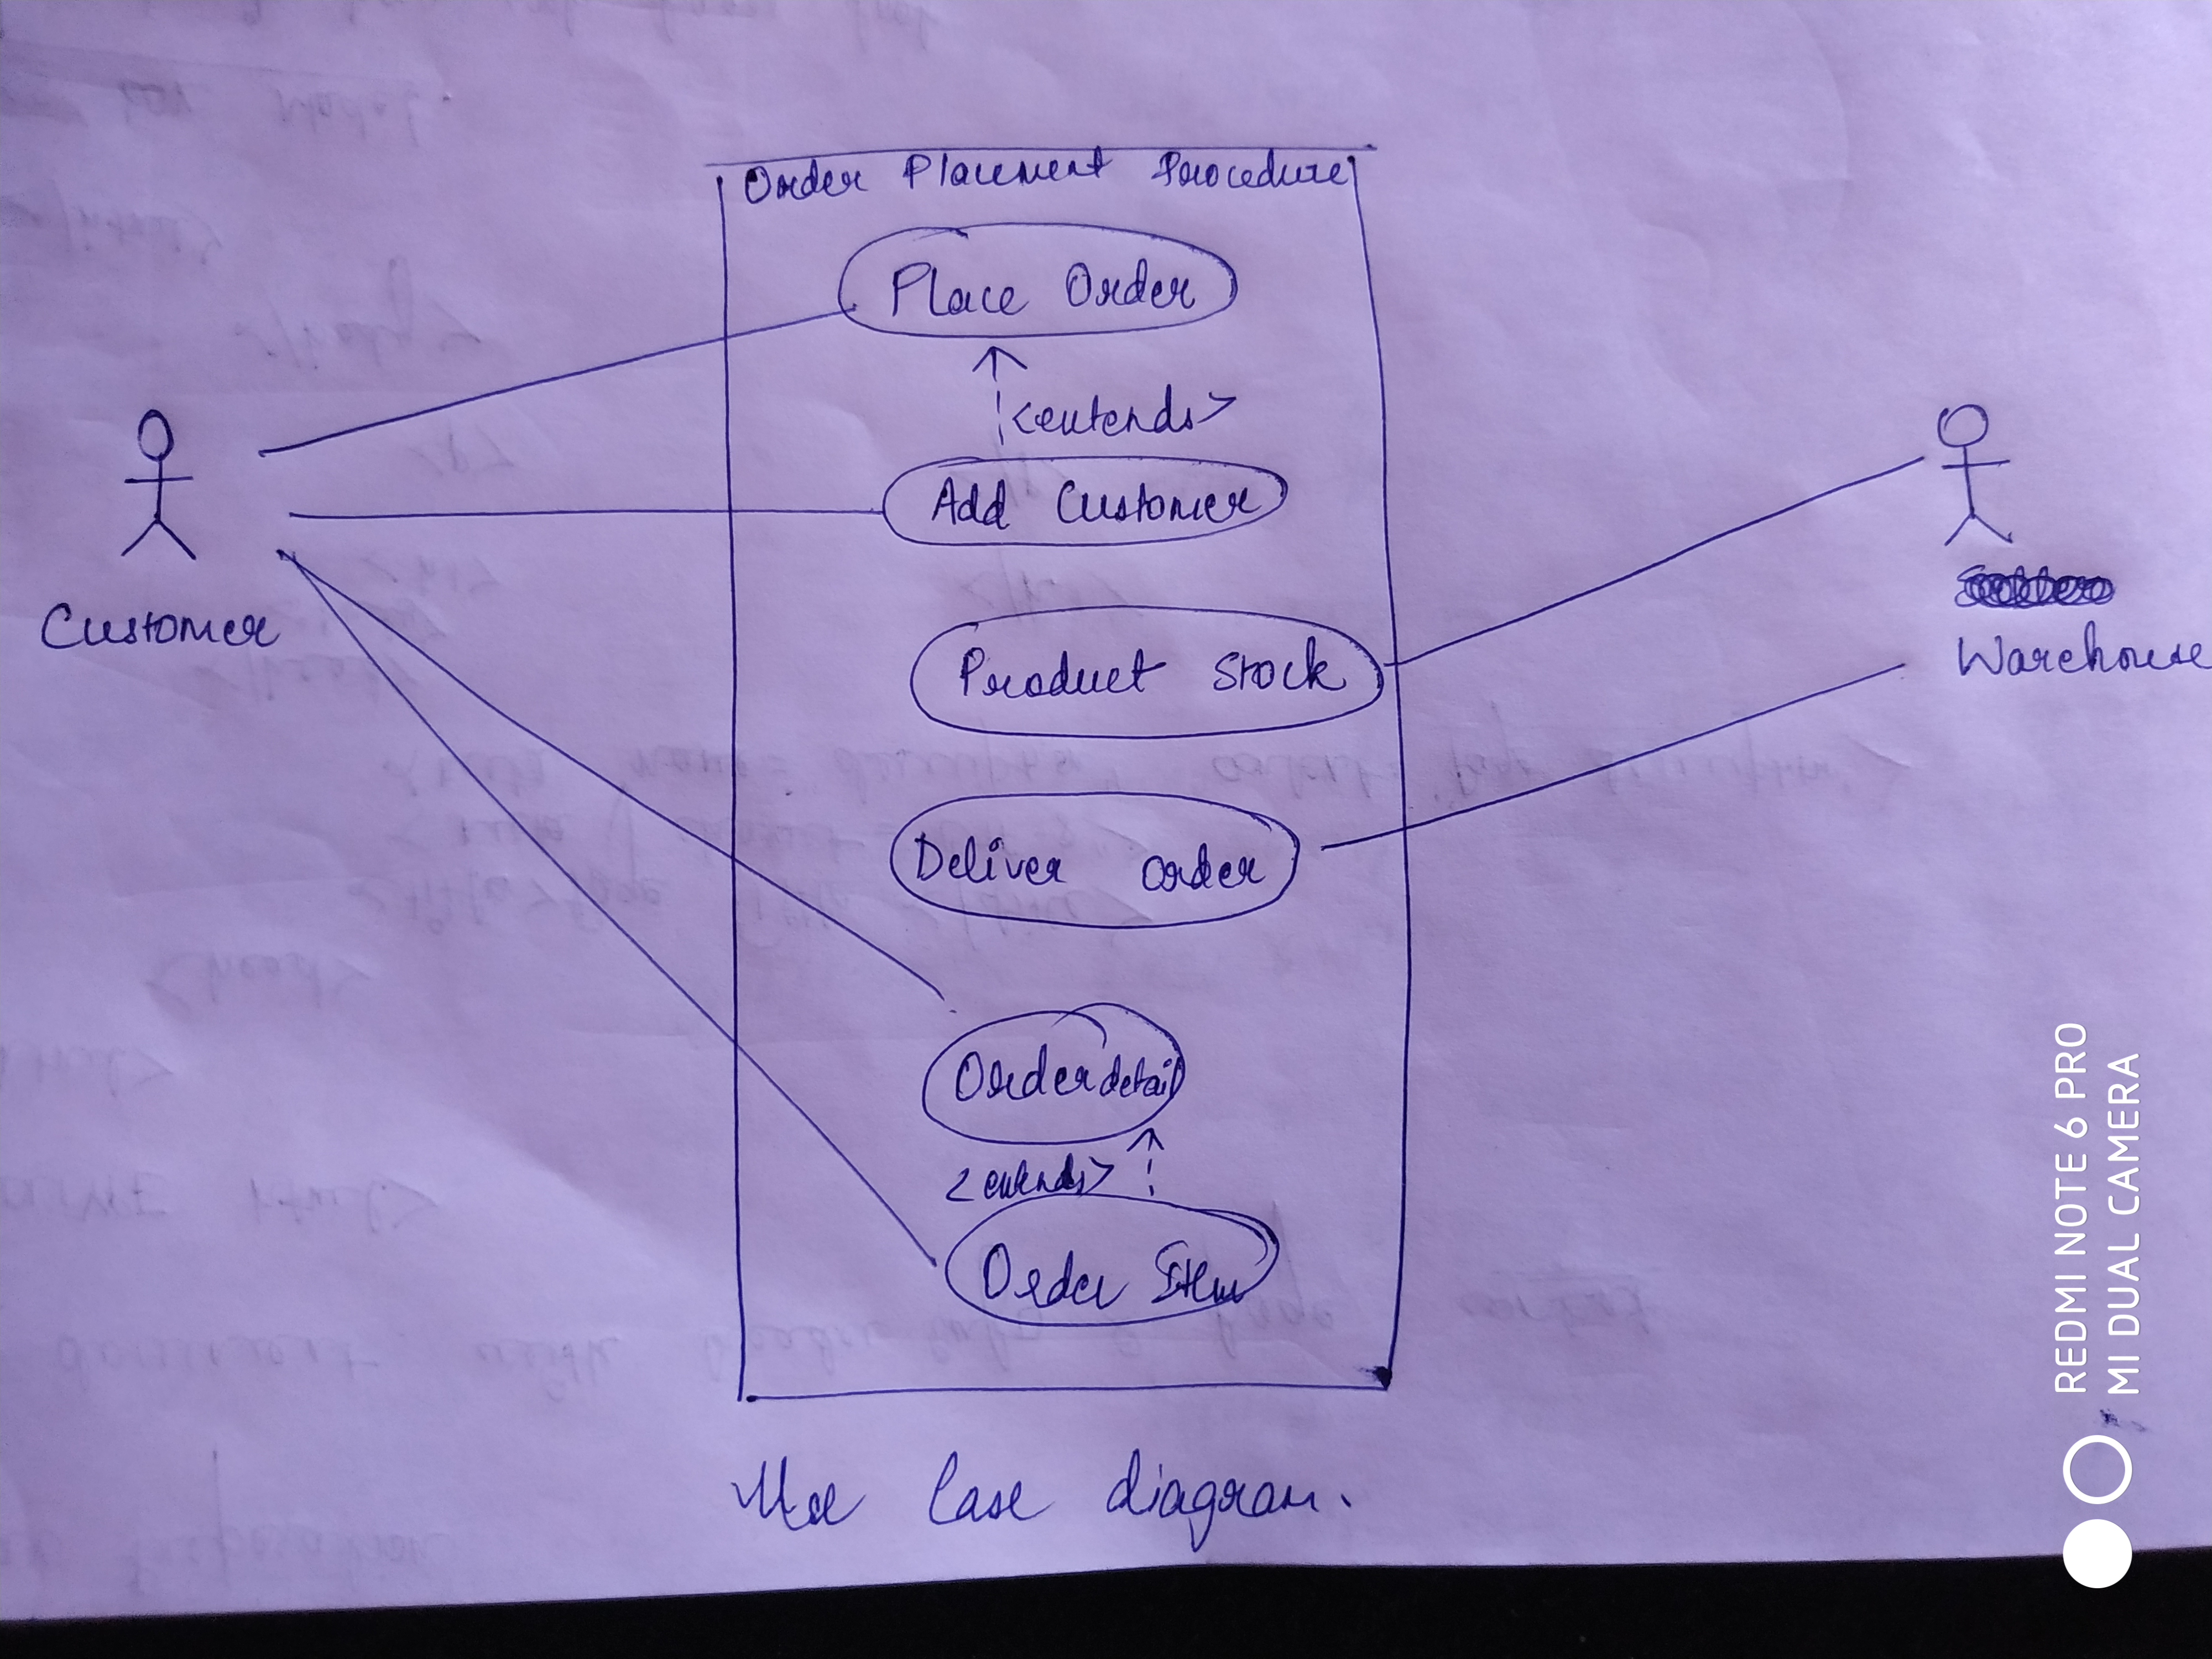 Order Placement Procedure
Customer
Place Order
<extends>
Add Customer
Product Stock
Deliver order
Orderdetail
<extends>
Order Item
Warehouse
Use Case diagram.
REDMI NOTE 6 PRO
MI DUAL CAMERA